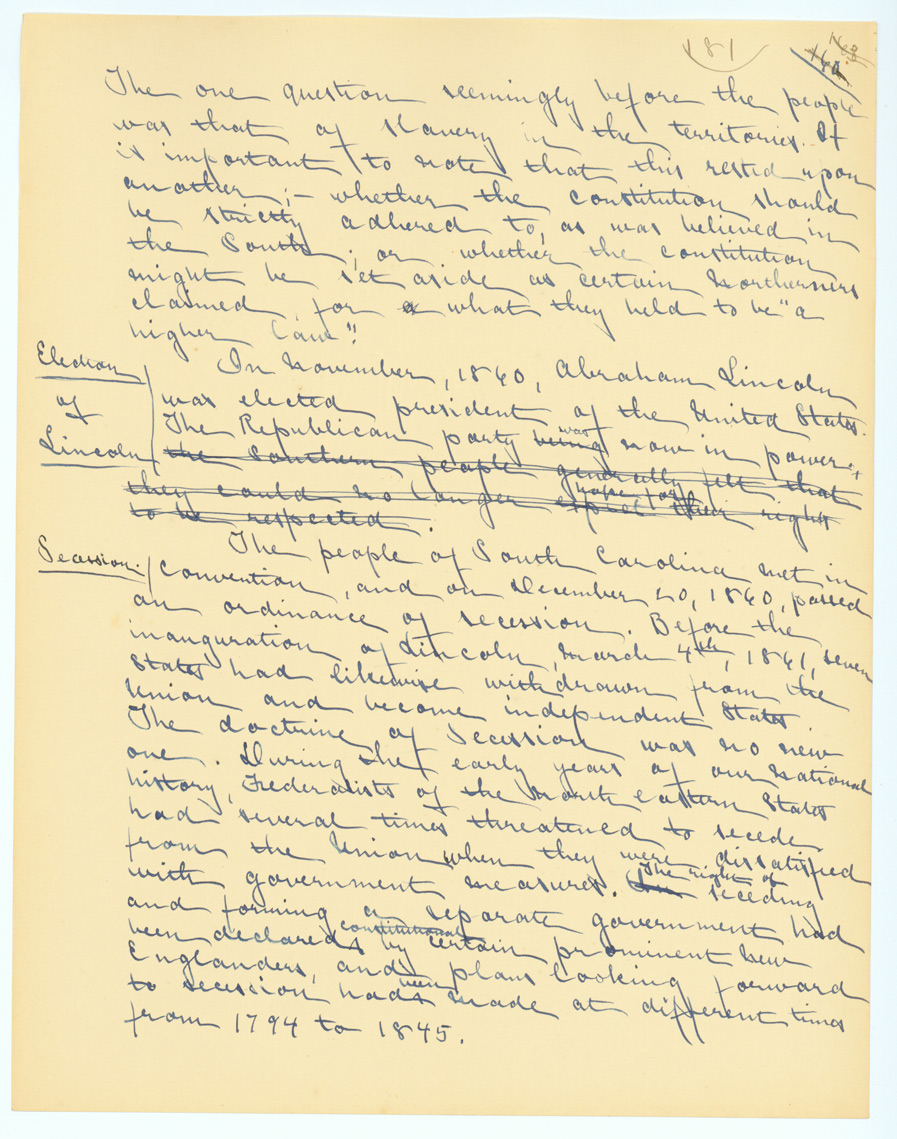 181
The one question seemingly before the people
was that of slavery in the territories. It
is important to note that this rested upon
another;- whether the constitution should
be strictly adhered to, as was believed in
the South; or whether the constitution
might be set aside as certain Northerners
claimed, for a what they held to be "a
higher law".
Election
of
Lincoln
In November, 1860, Abraham Lincoln
was elected president of the United States.
The Republican party being was now in power,
the southern people generally felt that
they could no longer expect hope for their rights
to be respected.
Secession.
The people of South Carolina met in
convention, and on December 20, 1860, passed
an ordinance of secession. Before the
inauguration of Lincoln, March 4th, 1861, seven
States had likewise withdrawn from the
Union and become independent States.
The doctrine of Secession was no new
one. During the early years of our National
history, Federalists of the north eastern States
had several times threatened to secede
from the Union when they were dissatisfied
with government measures. The right of seceding
and forming a separate government had
been declared constitutional by certain prominent New
Englanders, and plans looking forward
to secession had been made at different times
from 1794 to 1845.